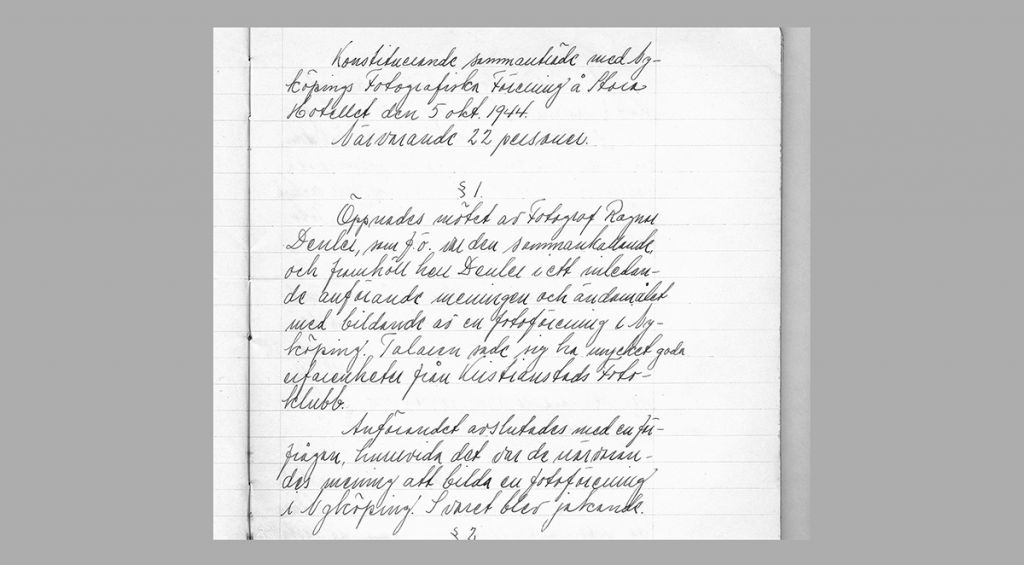 Konstituerande sammanträde med Ny-
köpings Fotografiska Förening å Stora
Hotellet den 5 okt. 1944.
Närvarande 22 personer.
§ 1.
Öppnades mötet av Fotograf Ragnar
Denler, som f.ö. var den sammankallande,
och framhöll herr Denler i ett inledan-
de anförande meningen och ändamålet
med bildande av en fotoförening i Ny-
köping. Talaren sade sig ha mycket goda
erfarenheter från Kristianstads Foto-
klubb.
Anförandet avslutades med en för-
frågan, huruvida det var de närvaran-
des mening att bilda en fotoförening
i Nyköping. Svaret blev jakande.
§ 2.